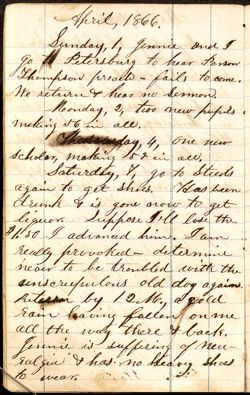 April, 1866.
Sunday, 1, Jennie and I
go to Petersburg to hear Parson
Thompson preach - fails to come.
We return & hear no sermon.
Monday, 2, two new pupils
making 56 in all.
Wednesday, 4, one new
scholar, making 57 in all.
Saturday, 7, go to Steeds
again to get shoes. Has been
drunk & is gone now to get
liquor. Suppose I'll lose the
$1.50 I advanced him. I am
really provoked - determine
never to be troubled with the
unscrupulous old dog again.
Return by 12 M., a cold
rain having fallen on me
all the way there & back.
Jennie is suffering of neu-
ralgia & has no heavy shoes
to wear.